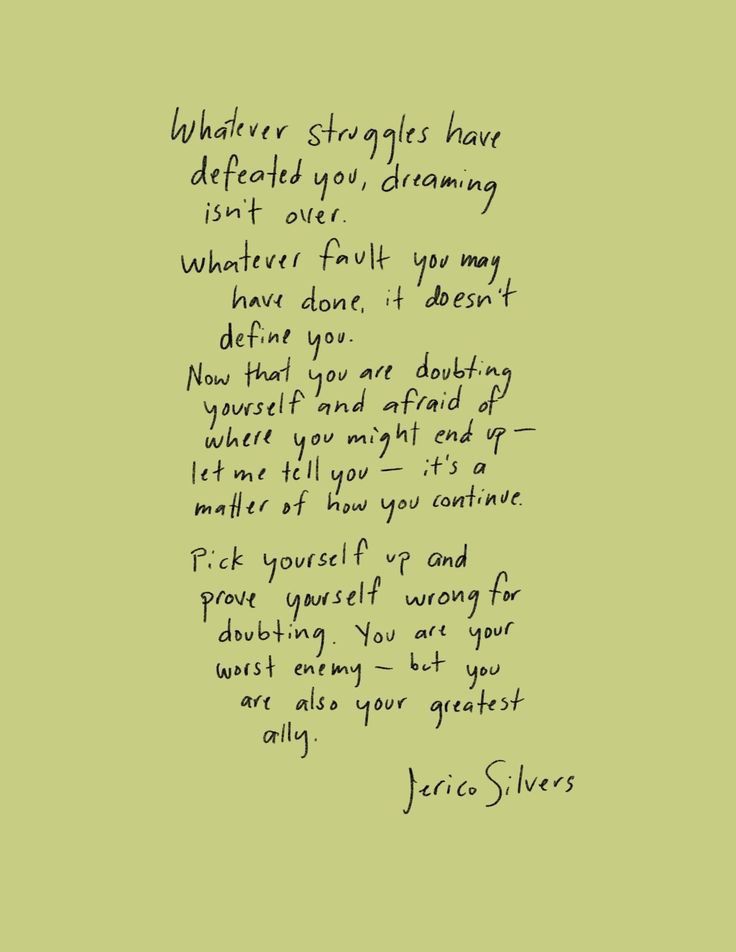 Whatever struggles have
defeated you, dreaming
isn't over.
Whatever fault you may
have done, it doesn't
define you.
Now that you are doubting
yourself and afraid of
where you might end up —
let me tell you — it's a
matter of how you continue.
Pick yourself up and
prove yourself wrong for
doubting. You are your
worst enemy — but you
are also your greatest
ally.
Jerico Silvers